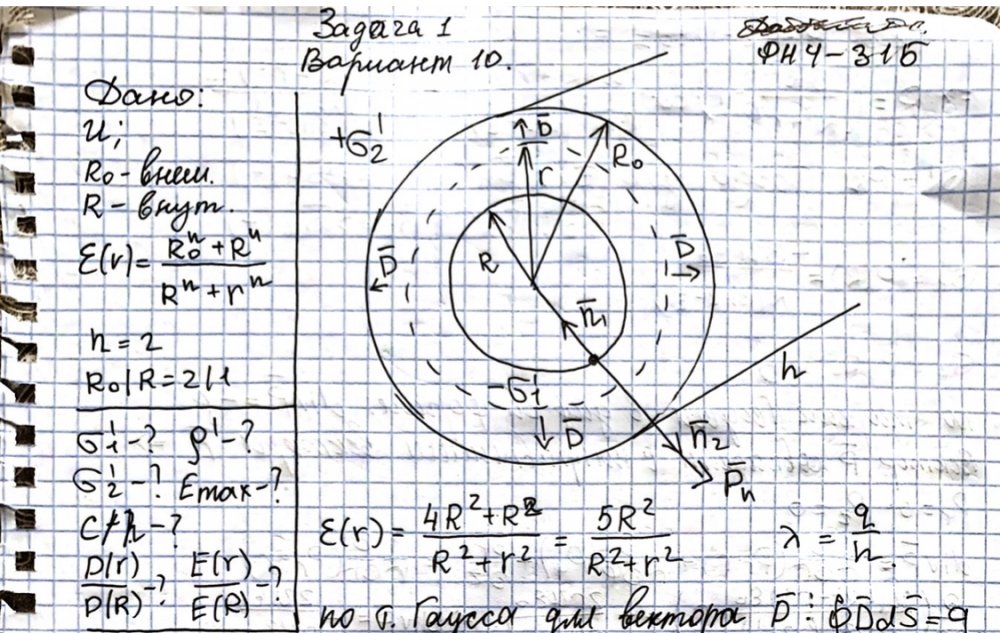 Задача 1
Вариант 10.
ФН4-31Б
Дано:
U;
R₀ - внеш.
R - внут.
ε(r) = (R₀ⁿ + Rⁿ) / (Rⁿ + rⁿ)
n = 2
R₀/R = 2/1
σ₁' - ? ρ' - ?
σ₂' - ? Emax - ?
C/h - ?
D(r)/D(R) - ? E(r)/E(R) - ?
+σ₂'
D̄
R₀
r
D̄
R
D̄
n̄₁
-σ₁'
D̄
h
n̄₂
P̄n
ε(r) = (4R² + R²) / (R² + r²) = 5R² / (R² + r²)
λ = q/h
по т. Гаусса для вектора D̄: ∮D̄dS̄ = q